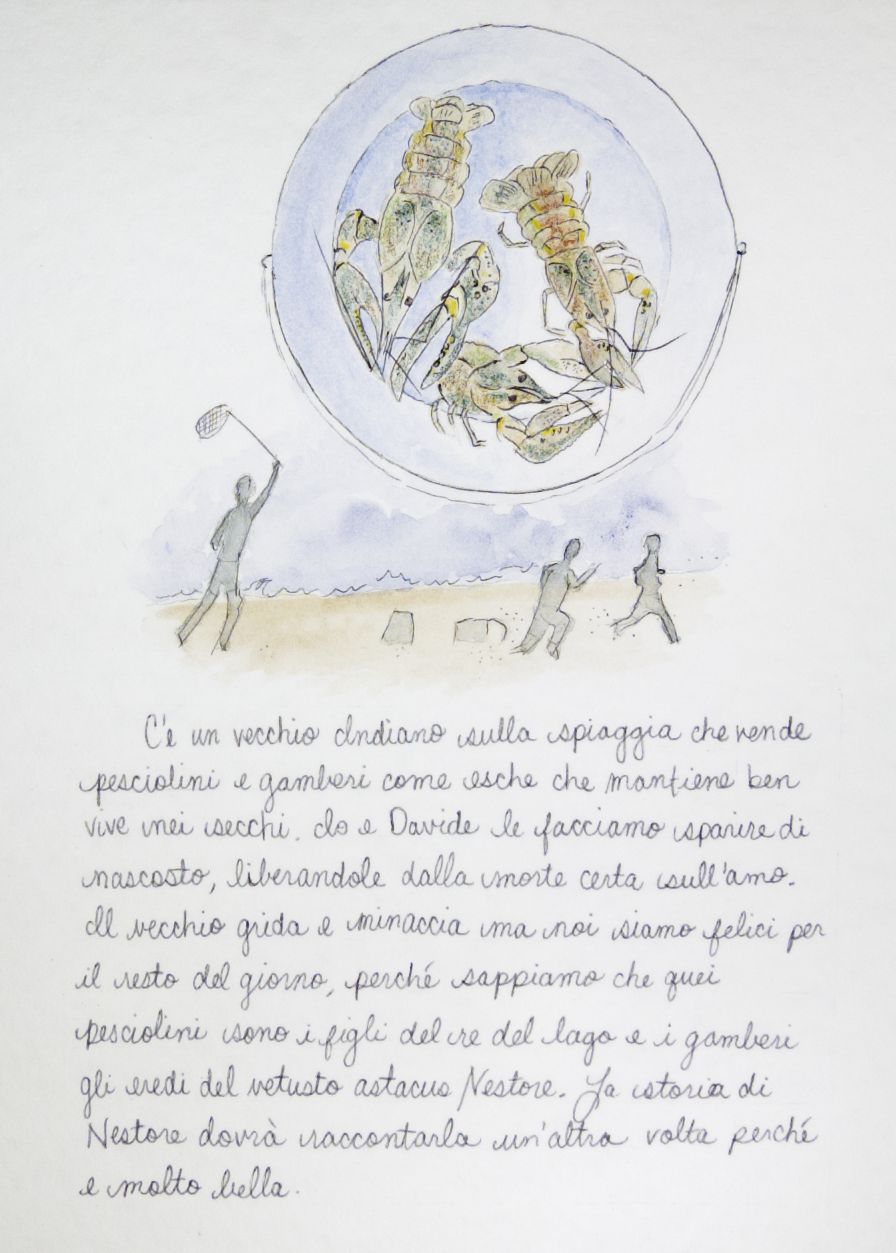 C'è un vecchio Indiano sulla spiaggia che vende
pesciolini e gamberi come esche che mantiene ben
vive nei secchi. Io e Davide le facciamo sparire di
nascosto, liberandole dalla morte certa sull'amo.
Il vecchio grida e minaccia ma noi siamo felici per
il resto del giorno, perché sappiamo che quei
pesciolini sono i figli del re del lago e i gamberi
gli eredi del vetusto astacus Nestore. La storia di
Nestore dovrà raccontarla un'altra volta perché
e molto bella.